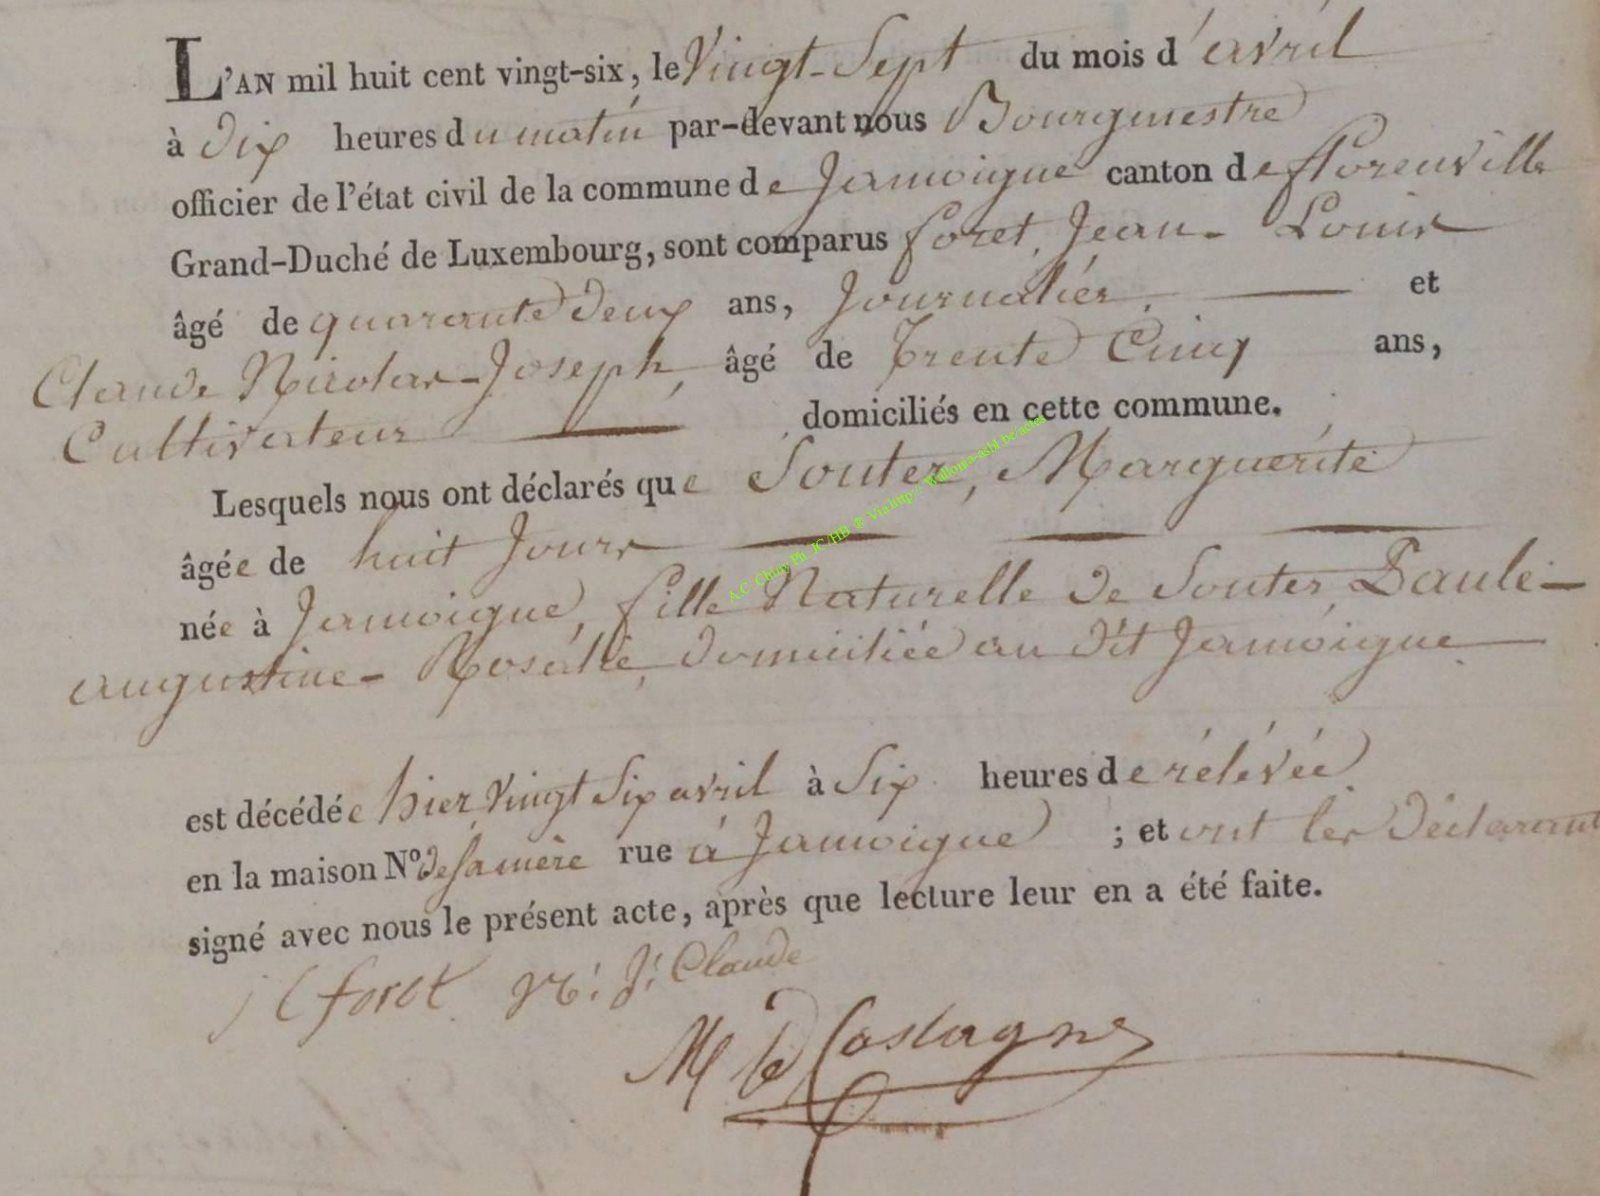 L'AN mil huit cent vingt-six, le Vingt-Sept du mois d'avril
à dix heures du matin par-devant nous Bourgmestre
officier de l'état civil de la commune de Jamoigne canton de florenville
Grand-Duché de Luxembourg, sont comparus foret, Jean-Louis
âgé de quarante deux ans, Journalier, et
Claude Nicolas-Joseph, âgé de Trente Cinq ans,
Cultivateur domiciliés en cette commune.
Lesquels nous ont déclarés que Souter, Marguerite
âgée de huit Jours
née à Jamoigne, fille Naturelle de Souter, Paule-
augustine-Rosalie, domiciliée au dit Jamoigne
est décédée hier vingt Six avril à Six heures de rélévée
en la maison N° de sa mère rue à Jamoigne ; et ont les déclarant
signé avec nous le présent acte, après que lecture leur en a été faite.
foret N: J: Claude